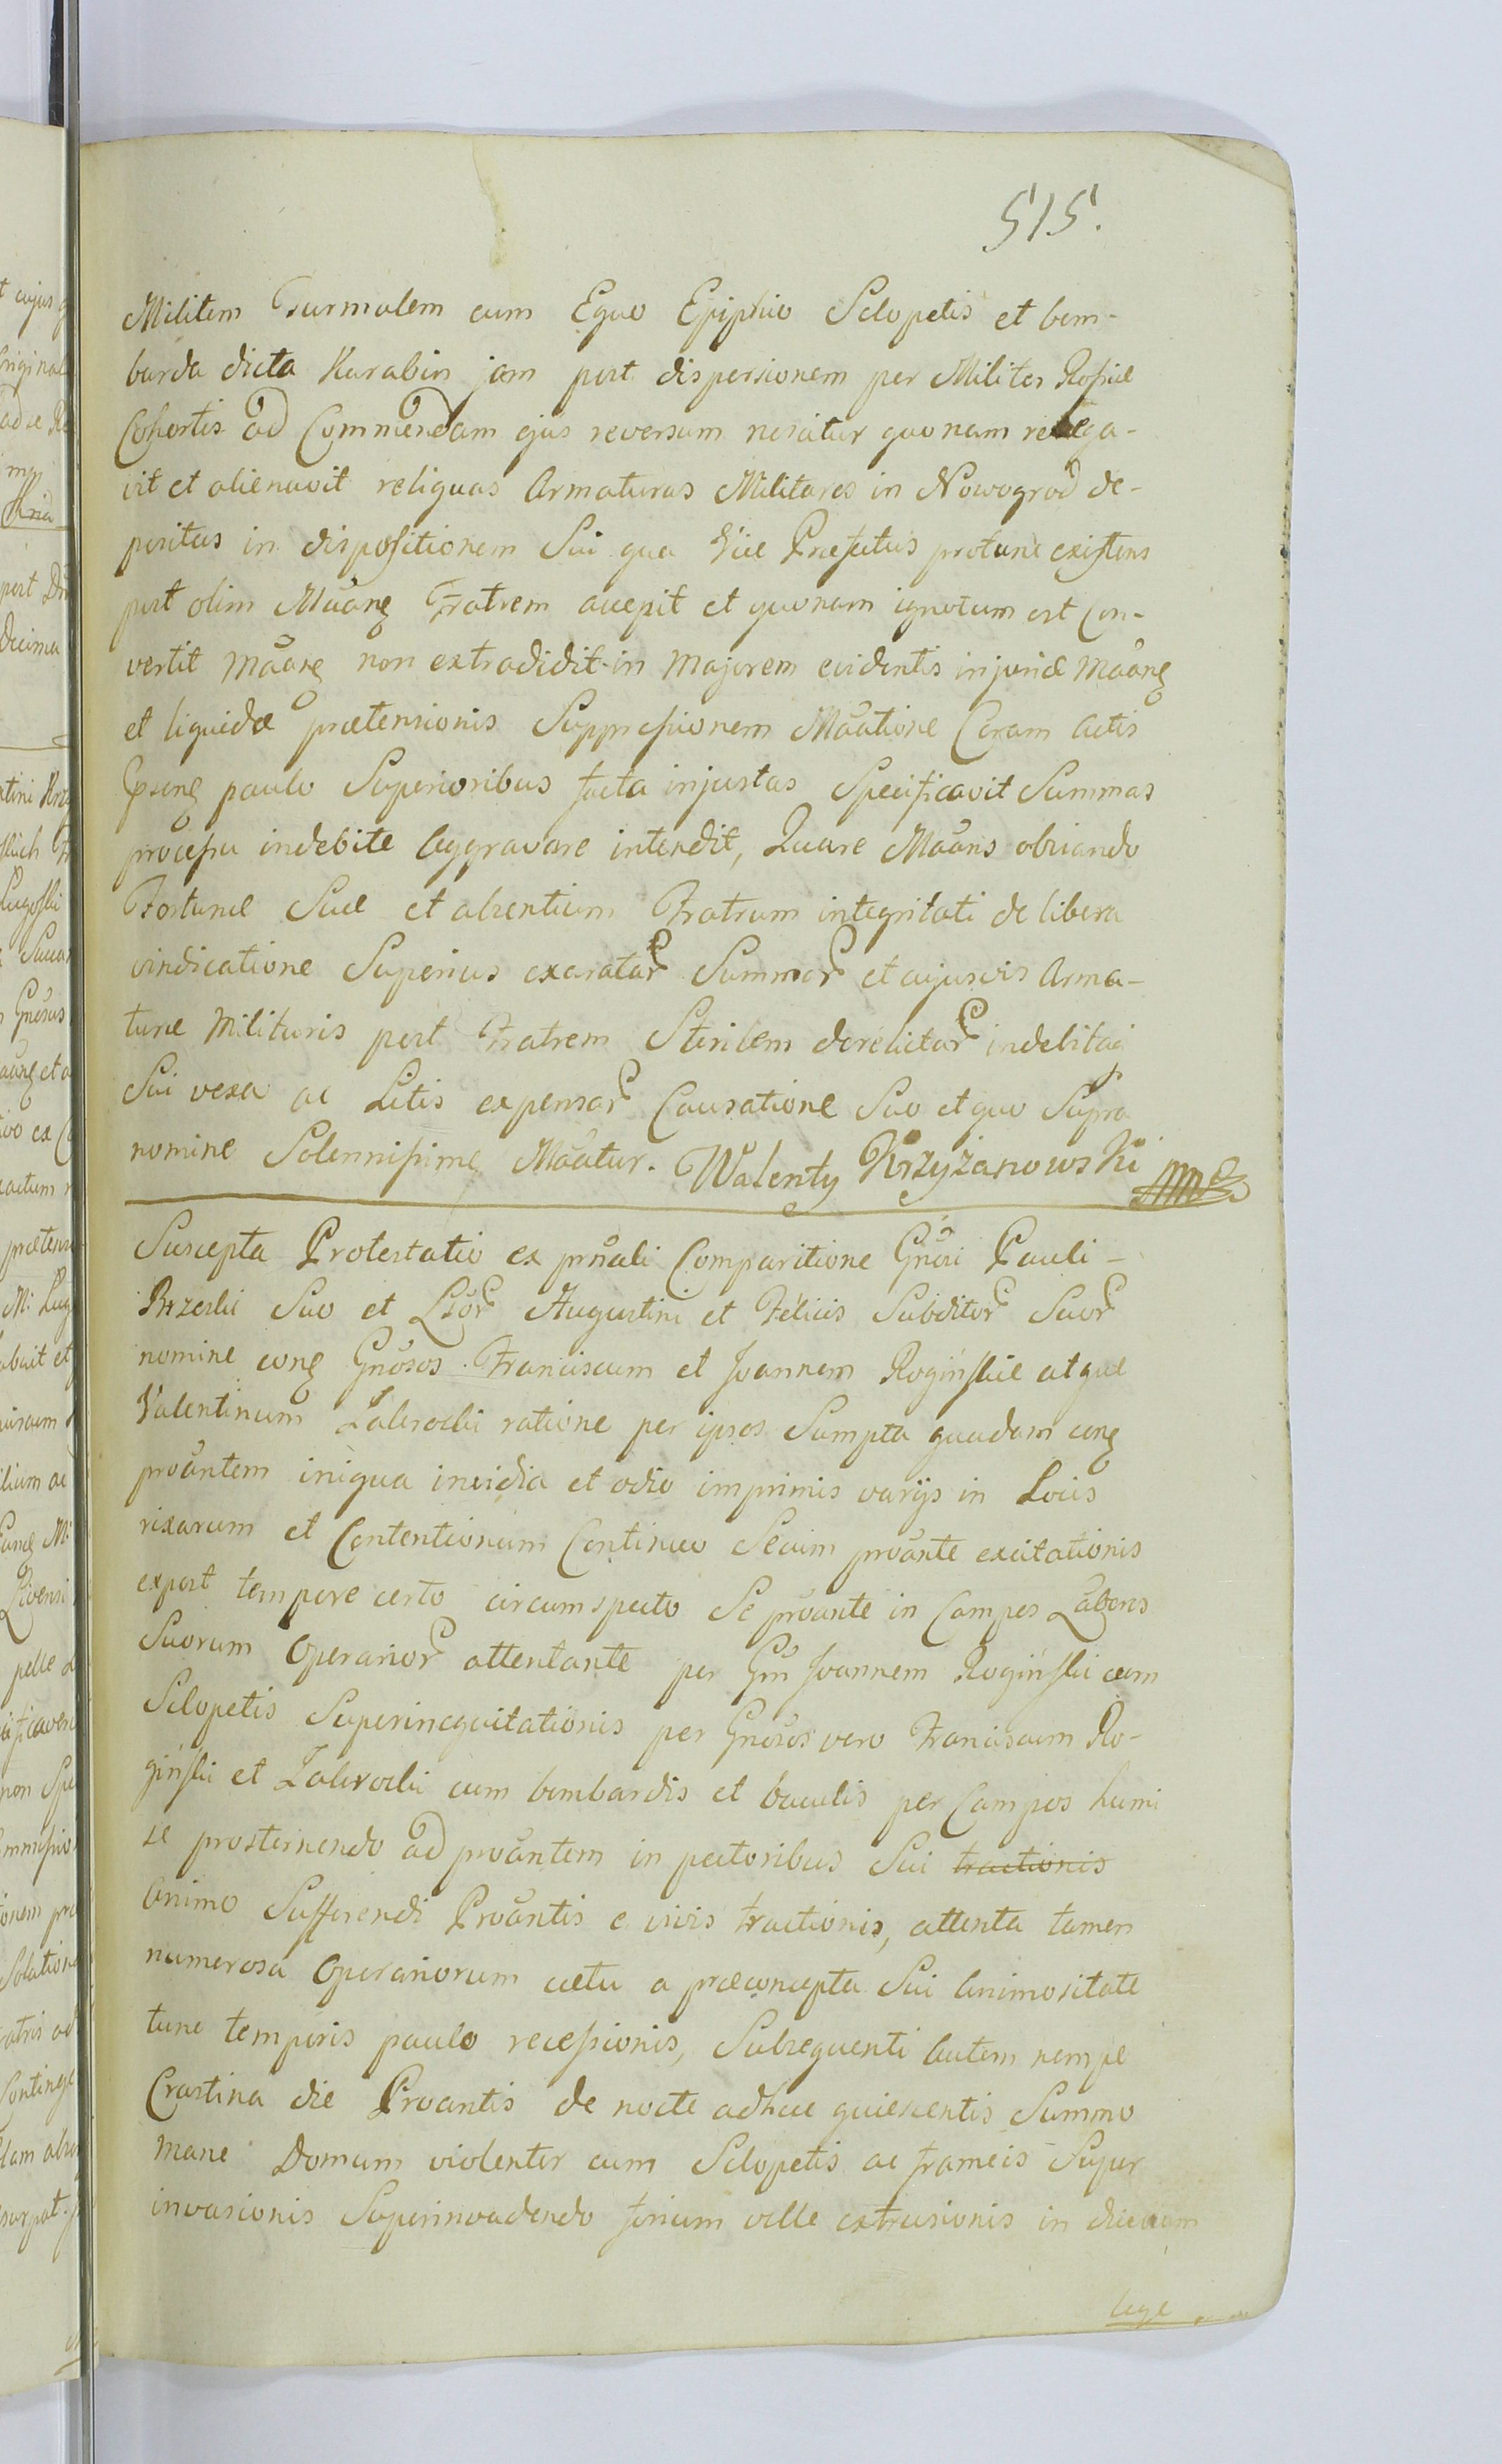 515.
Militem Turmalem cum Equo Ephipio Sclopetis et bom-
barda dicta Karabin jam post dispersionem per Milites Rossiae
Cohortis ad Commendam ejus reversum nescitur quonam relega-
vit et alienavit reliquas Armaturas Militares in Nowogrod de-
positas in dispositionem Sui qua Vice Praefectus protunc existens
post olim Mãang Fratrem accepit et quonam ignotum est Con-
vertit Mãang non extradidit in Majorem evidentis injuriae Mãang
et liquidae praetensionis Suppressionem Mãatione Coram Actis
pseng paulo Superioribus facta injustas Specificavit Summas
processu indebite Aggravare intendit, Quare Mãans obviando
Fortunae Suae et absentium Fratrum integritati de libera
vindicatione Superius exaratar Summar et cujusvis Arma-
turae Militaris post Fratrem Sterilem derelictar indebitaq
Sui vexa ac Litis expensar Causatione Suo et quo Supra
nomine Solennissime Mãatur. Walenty Krzyżanowski
Suscepta Protestatio ex prñali Comparitione Gñosi Pauli
Brzeski Suo et Lbor Augustini et Felicis Subditor Suor
nomine cong Gñosos Franciscum et Joannem Rogińskie atque
Valentinum Zabrocki ratione per ipsos Sumpta quadam cong
proãntem iniqua invidia et odio imprimis varijs in Locis
rixarum et Contentionum Continuo Secum proãnte excitationis
expost tempore certo circumspecto Se proãnte in Campos Labores
Suorum Operarior attentante per Gm Joannem Rogiński cum
Sclopetis Superinequitationis per Gñosos vero Franciscum Ro-
giński et Zabrocki cum bombardis et baculis per Campos humi
se prosternendo ad proãntem in pectoribus Sui tractionis
Animo Sufferendi Proãntis e vivis tractionis, attenta tamen
numerosa Operariorum caetu a praeconcepta Sui Animositate
tunc temporis paulo recessionis, Subsequenti Autem nempe
Crastina die Proantis de nocte adhuc quiescentis Summo
Mane Domum violenter cum Sclopetis ac frameis Super
invasionis Superinvadendo forium velle extrusionis in
lege